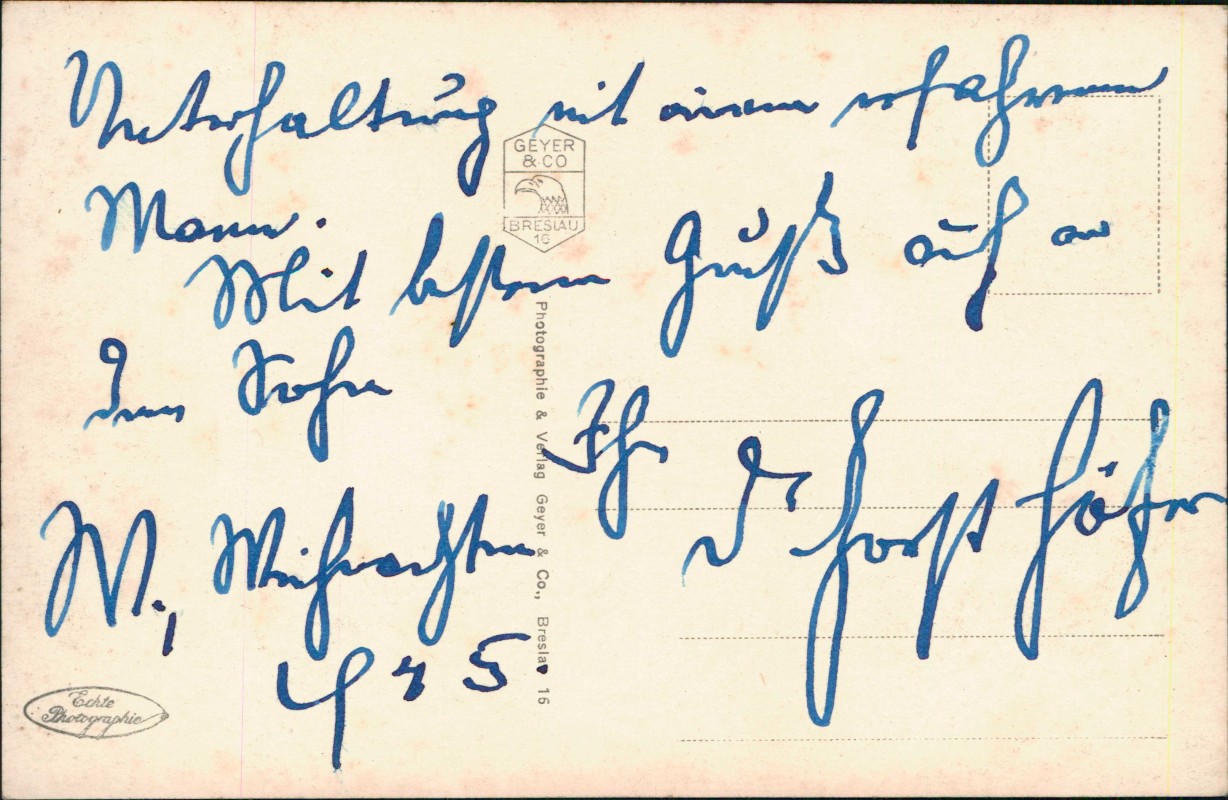 Unterhaltung mit einem erfahrenen
Mann.
Mit bestem Gruß auch an
den Sohn
Ihr
Dr Horst
W., Weihnachten
45
GEYER
& CO
BRESLAU
16
Photographie & Verlag Geyer & Co., Breslau 16
Echte
Photographie